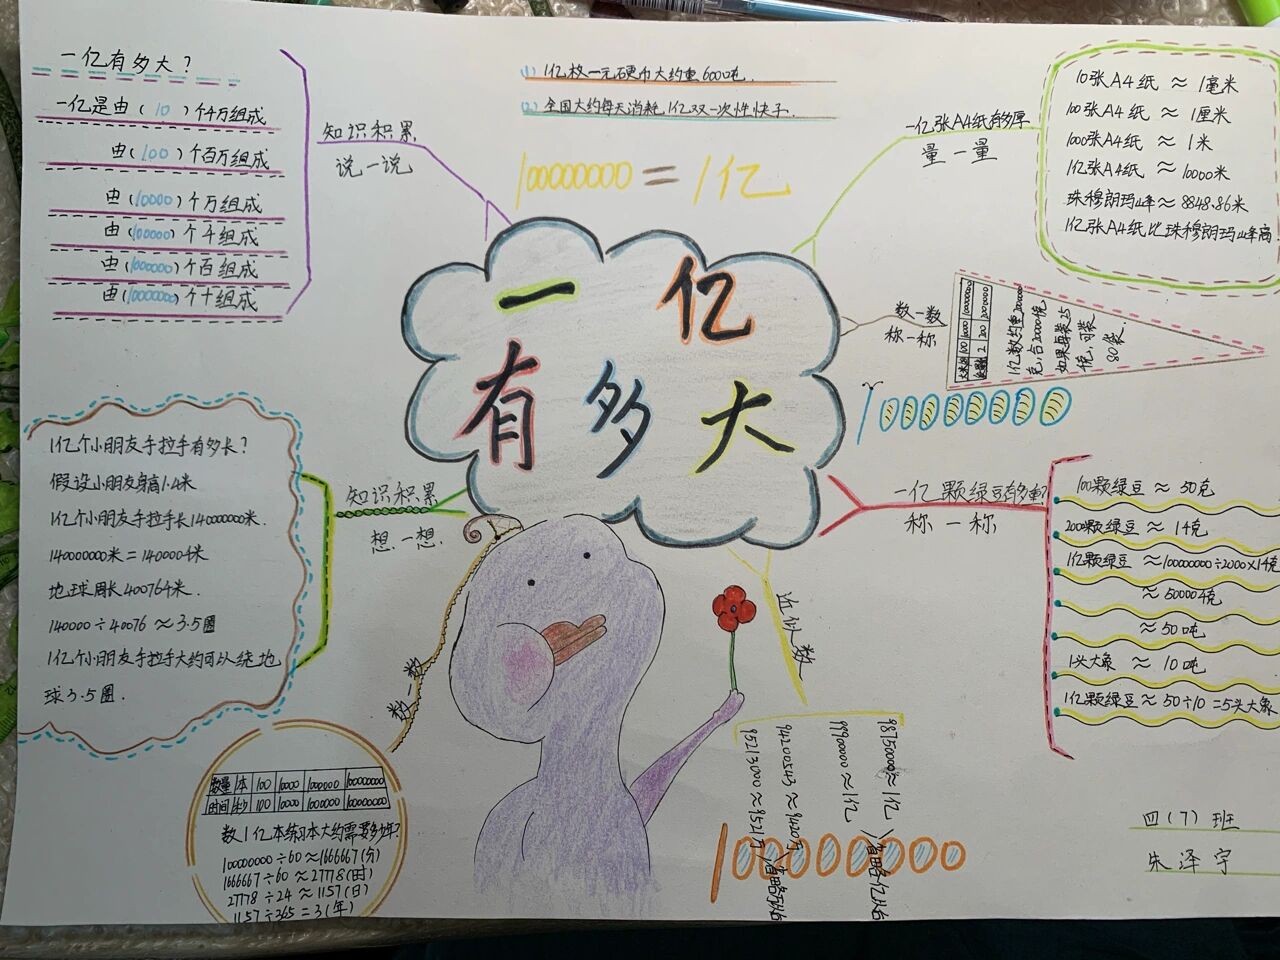 一亿有多大？
一亿是由（10）个千万组成
由（100）个百万组成
由（10000）个万组成
由（100000）个千组成
由（1000000）个百组成
由（10000000）个十组成
知识积累
说一说
(1) 1亿枚一元硬币大约重600吨.
(2) 全国大约每天消耗1亿双一次性筷子.
100000000=1亿
一亿张A4纸有多厚
量一量
10张A4纸≈1毫米
100张A4纸≈1厘米
1000张A4纸≈1米
1亿张A4纸≈10000米
珠穆朗玛峰≈8848.86米
1亿张A4纸比珠穆朗玛峰高
一亿
有多大
数一数
称一称
如果每袋25
千克，可装
80袋.
1亿个小朋友手拉手有多长？
假设小朋友身高1.4米
1亿个小朋友手拉手长14000000米.
140000000米=140000千米
地球周长40076千米.
140000÷40076≈3.5圈
1亿个小朋友手拉手大约可以绕地
球3.5圈.
知识积累
想一想.
一亿颗绿豆有多重？
称一称
100颗绿豆≈50克
200颗绿豆≈14克
1亿颗绿豆≈10000000÷2000×14克
≈50000千克
≈50吨
1头大象≈10吨
1亿颗绿豆≈50÷10=5头大象
数一数
数量|本|100|10000|1000000|100000000
时间|秒|100|10000|1000000|100000000
数1亿本练习本大约需要多少年？
10000000÷60≈1666667(分)
1666667÷60≈27778(时)
27778÷24≈1157(日)
1157÷365=3(年)
近似数
98750000≈1亿
99900000≈1亿
94200543≈9420万
95213000≈9521万
100000000
四（7）班
朱泽宇